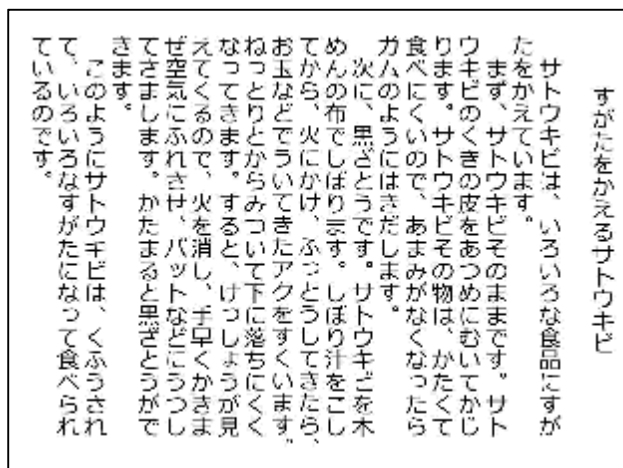 すがたをかえるサトウキビ
サトウキビは、いろいろな食品にすが
たをかえています。
まず、サトウキビそのままです。サト
ウキビのくきの皮をあつめにむいてかじ
ります。サトウキビその物は、かたくて
食べにくいので、あまみがなくなったら
ガムのようにはきだします。
次に、黒ざとうです。サトウキビを木
めんの布でしばります。しぼり汁をこし
てから、火にかけ、ふっとうしてきたら、
お玉などでういてきたアクをすくいます。
ねっとりとからみついて下に落ちにくく
なってきます。すると、けっしょうが見
えてくるので、火を消し、手早くかきま
ぜ空気にふれさせ、バットなどにうつし
てさまします。かたまると黒ざとうがで
きます。
このようにサトウキビは、くふうされ
て、いろいろなすがたになって食べられ
ているのです。